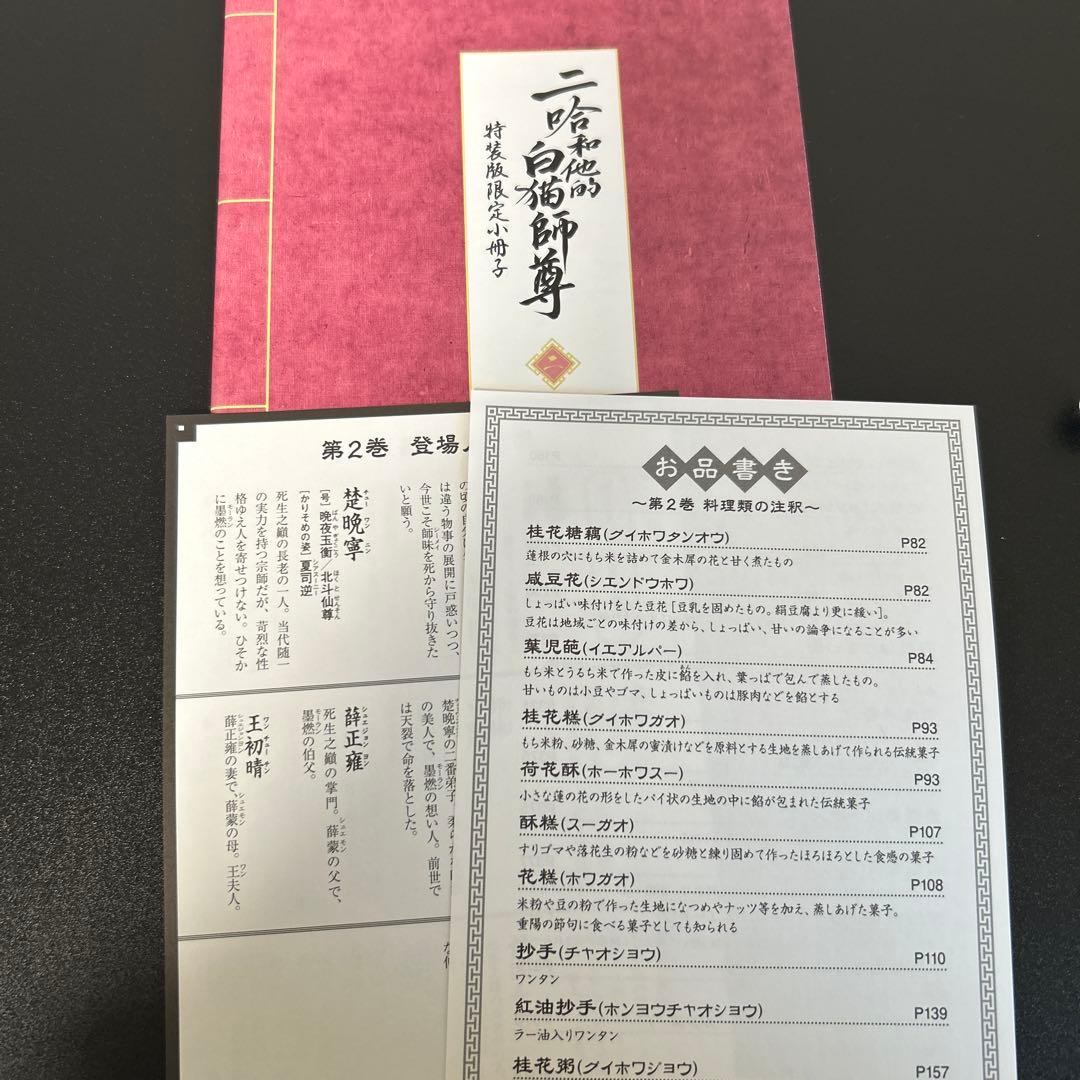 二哈和他的
白猫師尊
特装版限定小冊子
二
第2巻 登場
は違う物事の展開に戸惑いつつ、
今世こそ師昧を死から守り抜きた
いと願う。
楚晩寧
[号]晩夜玉衡/北斗仙尊
[かりそめの姿]夏司逆
死生之巓の長老の一人。当代随一
の実力を持つ宗師だが、苛烈な性
格ゆえ人を寄せつけない。ひそか
に墨燃のことを想っている。
楚晩寧の二番弟子
の美人で、墨燃の想い人。前世で
は天裂で命を落とした。
薛正雍
死生之巓の掌門。薛蒙の父で、
墨燃の伯父。
王初晴
薛正雍の妻で、薛蒙の母。王夫人。
お品書き
〜第2巻 料理類の注釈〜
桂花糖藕(グイホワタンオウ) P82
蓮根の穴にもち米を詰めて金木犀の花と甘く煮たもの
咸豆花(シエンドウホワ) P82
しょっぱい味付けをした豆花[豆乳を固めたもの。絹豆腐より更に緩い]。
豆花は地域ごとの味付けの差から、しょっぱい、甘いの論争になることが多い
葉児葩(イエアルパー) P84
もち米とうるち米で作った皮に餡を入れ、葉っぱで包んで蒸したもの。
甘いものは小豆やゴマ、しょっぱいものは豚肉などを餡とする
桂花糕(グイホワガオ) P93
もち米粉、砂糖、金木犀の蜜漬けなどを原料とする生地を蒸しあげて作られる伝統菓子
荷花酥(ホーホワスー) P93
小さな蓮の花の形をしたパイ状の生地の中に餡が包まれた伝統菓子
酥糕(スーガオ) P107
すりゴマや落花生の粉などを砂糖と練り固めて作ったほろほろとした食感の菓子
花糕(ホワガオ) P108
米粉や豆の粉で作った生地になつめやナッツ等を加え、蒸しあげた菓子。
重陽の節句に食べる菓子としても知られる
抄手(チャオショウ) P110
ワンタン
紅油抄手(ホンヨウチャオショウ) P139
ラー油入りワンタン
桂花粥(グイホワジョウ) P157